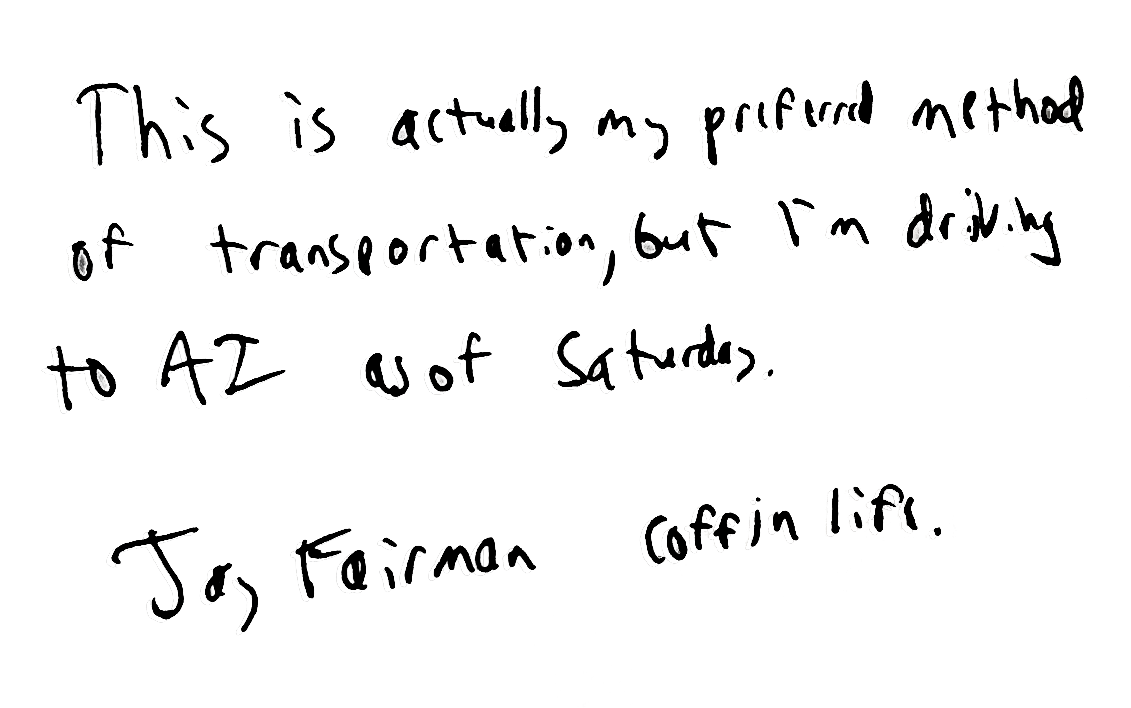 This is actually my preferred method
of transportation, but I'm driving
to AZ as of Saturday.
Jay Fairman coffin life.